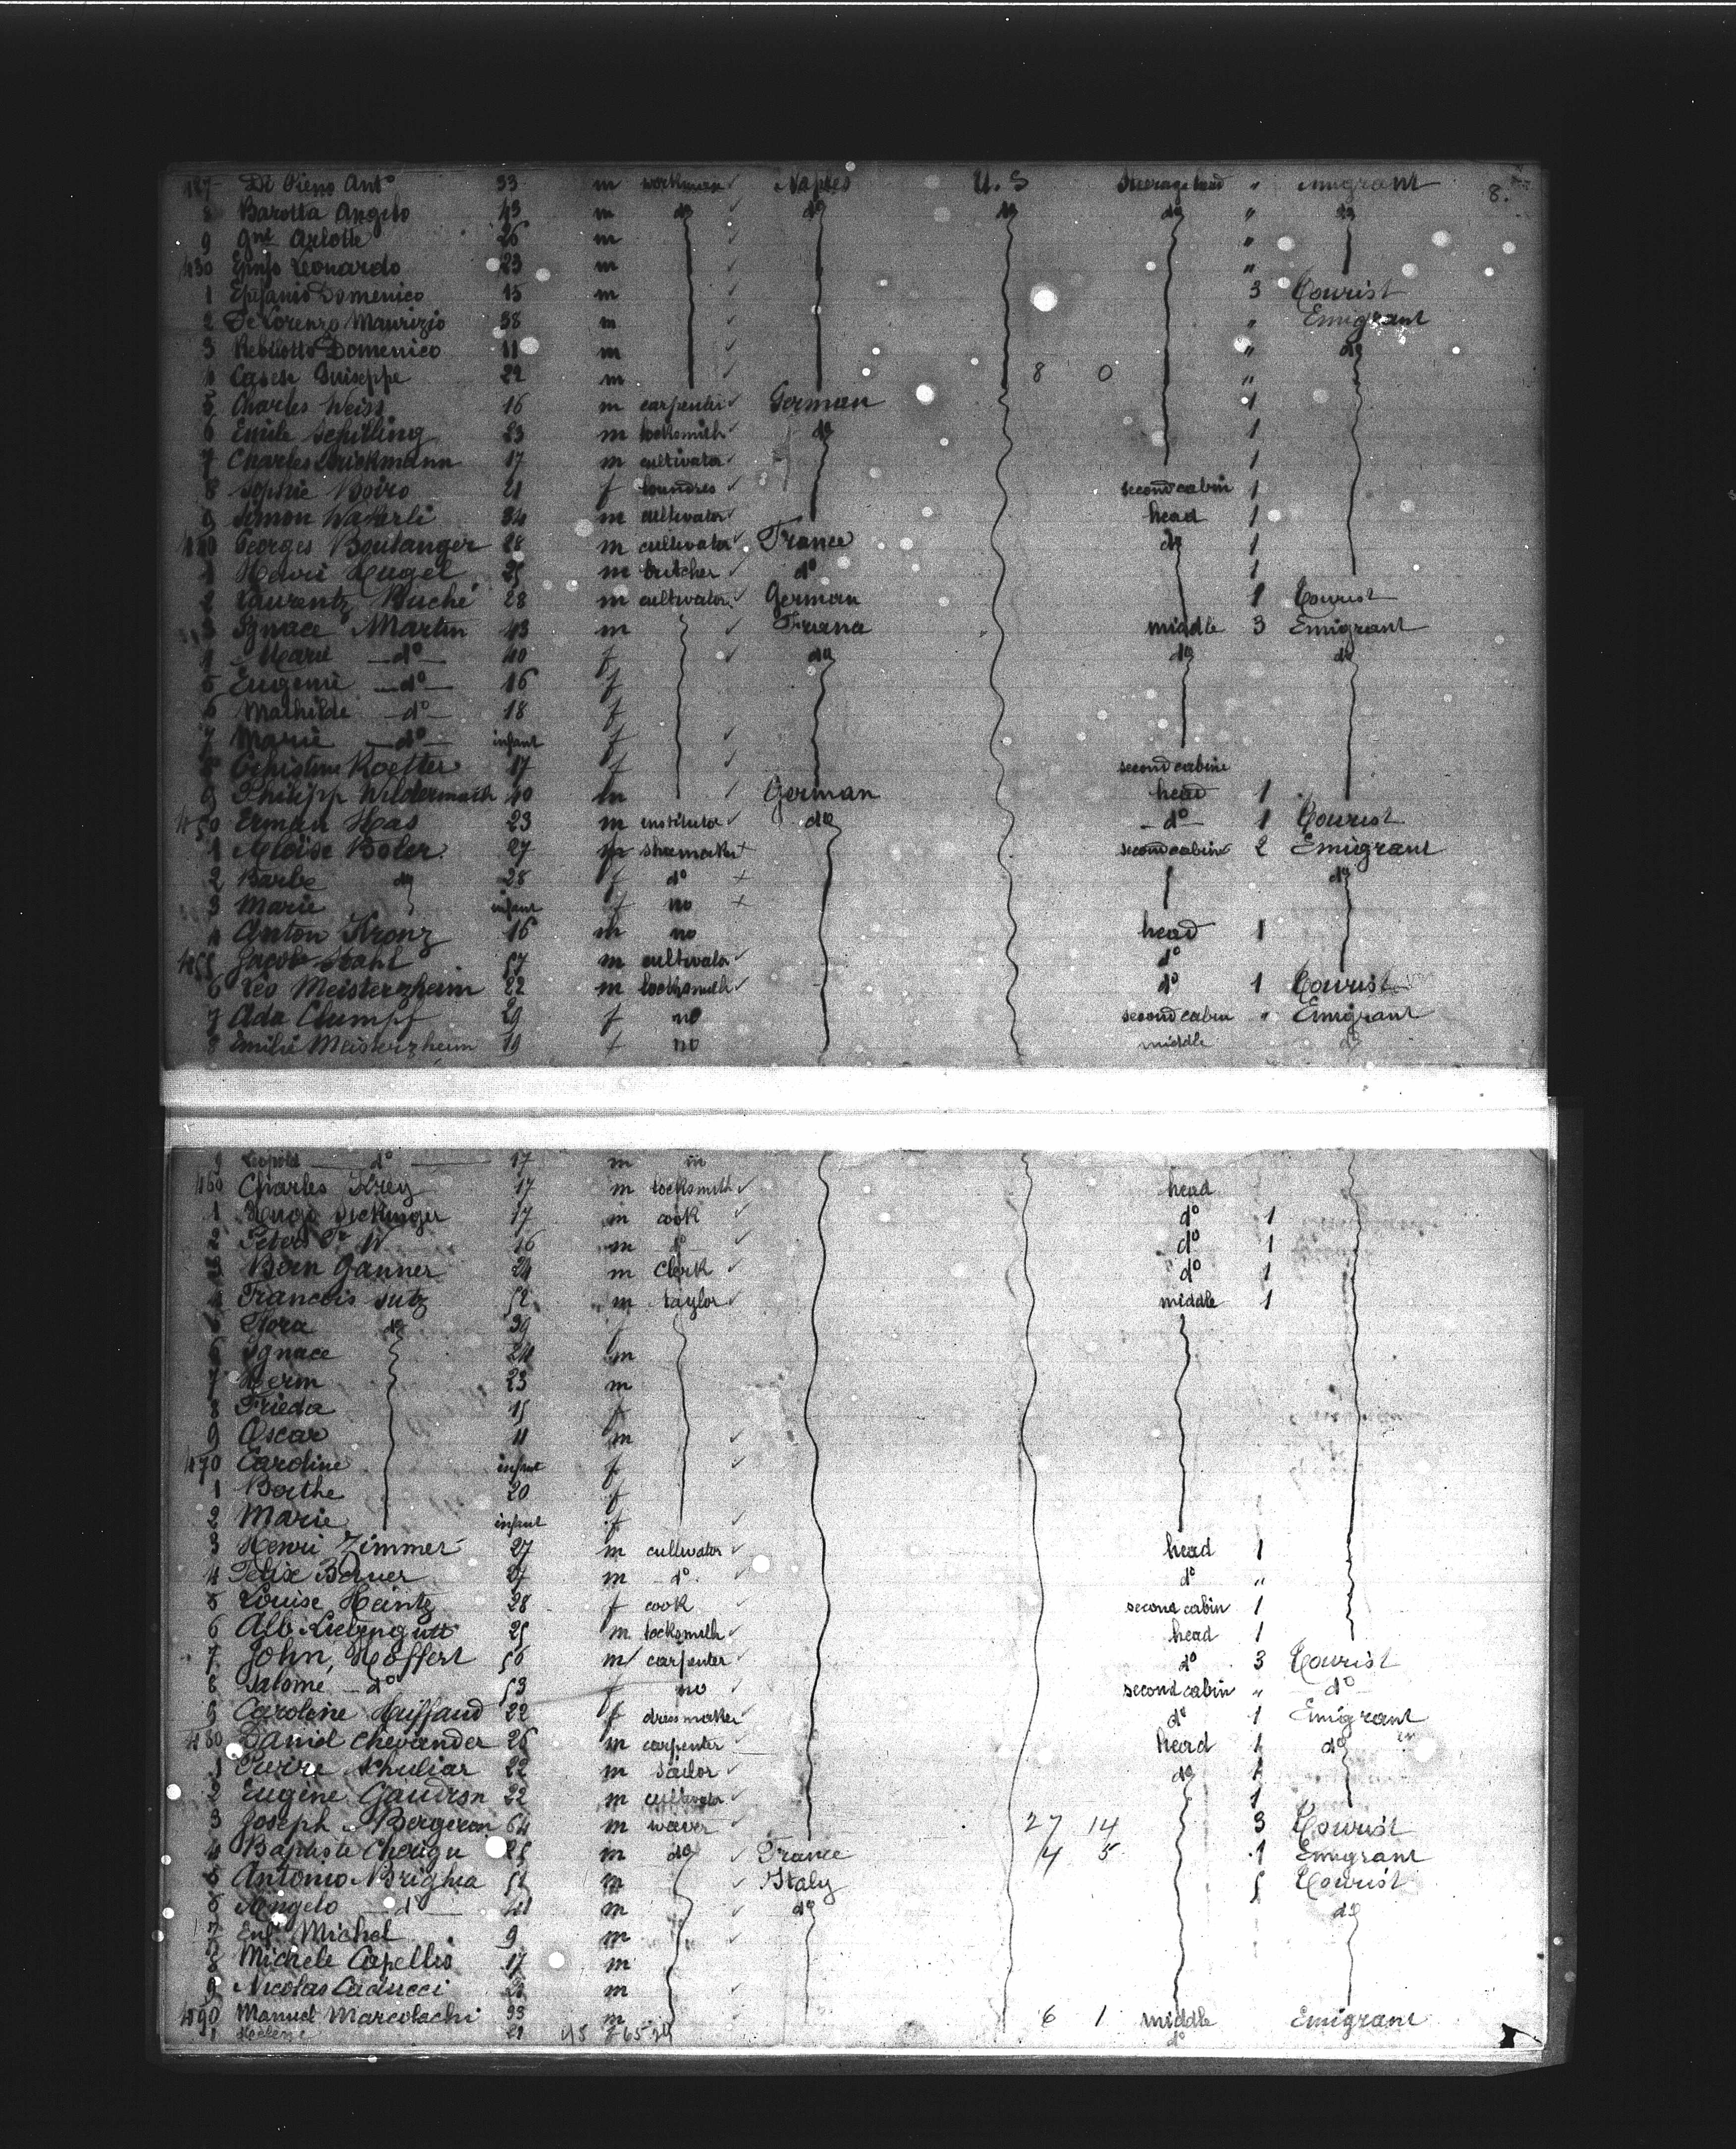 Di Pieno Ant° 33 m workman Naples U.S Steerage head " emigrant 8.
8 Barotta Angelo 43 m d° d° d° d° " d°
9 Arlotte 26 m "
430 Leonardo 23 m "
1 Epifanio Domenico 15 m 3 Tourist
2 De Lorenzo Maurizio 38 m " Emigrant
3 Domenico 11 m " d°
Casese Guiseppe 22 m 8 0 "
5 Charles Weiss 16 m carpenter German 1
6 Emile Schilling 23 m locksmith d° 1
7 Charles 17 m cultivator 1
8 Sophie Boiro 21 f second cabin 1
9 Simon 34 m cultivator head 1
440 Georges Boulanger 28 m cultivator France d° 1
1 Henri Hugel 25 m butcher d° 1
2 Laurentz Ruché 28 m cultivator German 1 Tourist
3 Ignace Martin 43 m France middle 3 Emigrant
4 Marie d° 40 f d° d° d°
5 Eugenie d° 16 f
6 Mathilde d° 18 f
7 Marie d° infant f
8 Christine Koeffer 17 f second cabine
9 Philipp Wildermuth 40 m German head 1
450 Erman Has 23 m institutor d° d° 1 Tourist
1 Aloise Boler 27 m shumaker second cabin 2 Emigrant
2 Barbe d° 28 f d° d°
3 Marie infant f no
4 Anton Kronz 16 m no head 1
455 Jacob Stahl 57 m cultivator d°
6 Léo Meisterzheim 22 m locksmith d° 1 Tourist
7 Ada Clumpf 29 f no second cabin " Emigrant
8 Emilie Meisterzheim 19 f no middle d°
9 Leopold d° 17 m
460 Charles Frey 17 m locksmith head
1 Hugo 17 m cook d° 1
2 Peter 16 m d° d° 1
3 Bern Ganner 24 m Clerk d° 1
4 Francois Sutz 52 m taylor middle 1
5 Flora d° 39 f
6 Ignace 24 m
7 Herm 23 m
8 Frieda 15 f
9 Oscar 11 m
470 Caroline infant f
1 Berthe 20 f
2 Marie infant f
3 Henri Zimmer 27 m cultivator head 1
4 Felix m d° d° "
5 Louise Heintz 28 f cook second cabin 1
6 Alb Liebengutt 25 m locksmith head 1
7 John Hoffert 56 m carpenter d° 3 Tourist
8 Salome d° 53 f no second cabin " d°
9 Caroline Huffaud 22 f dressmaker d° 1 Emigrant
480 Daniel Chevander 26 m carpenter head 1 d°
1 Pierre Schuliar 22 m Sailor d° 1
2 Eugène Gaudron 22 m cultivator 1
3 Joseph Bergeron 64 m waver 27 14 3 Tourist
4 Baptiste 25 m d° France 4 5 1 Emigrant
5 Antonio Brighia 51 m Italy 5 Tourist
6 Angelo d° m d° d°
7 Michel 9 m
8 Michele Capellio 17 m
9 Nicolas Caducci m
490 Manuel Marcolachi 33 m 6 1 middle Emigrant
1 Helene 21 f d°